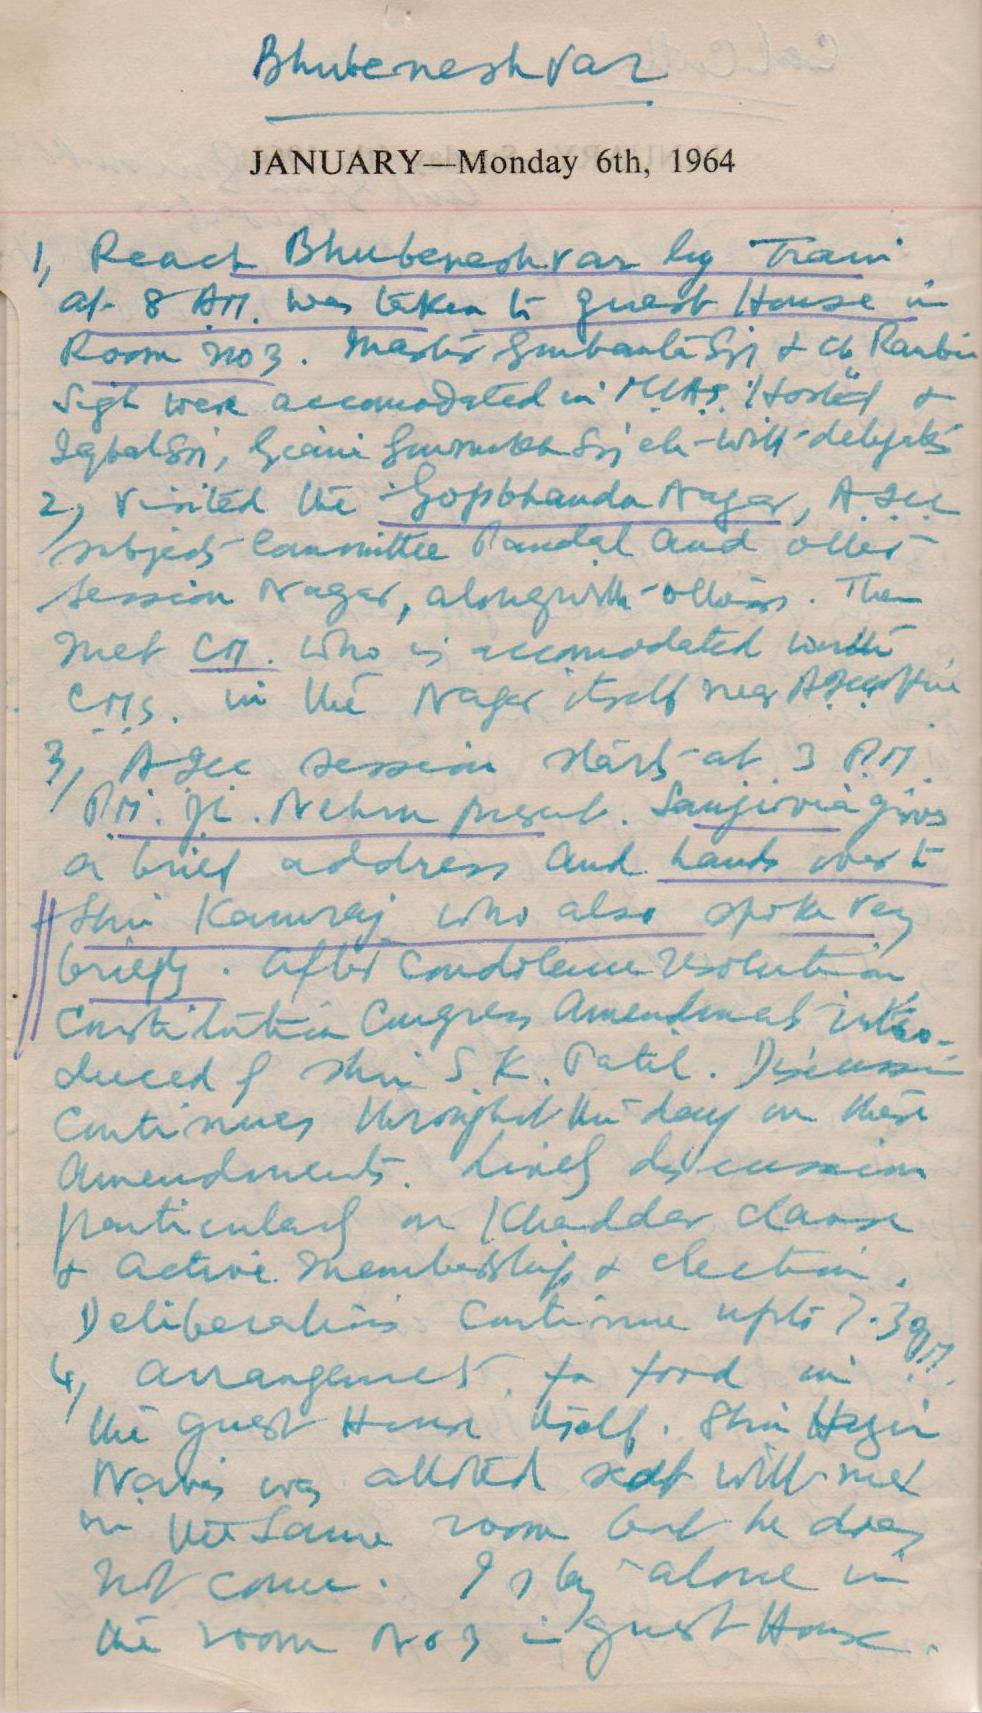 Bhubeneshvar
JANUARY—Monday 6th, 1964
1, Reach Bhubeneshvar by Train
at 8 AM. was taken to guest House in
Room No 3. Master Gurbanta Sgh & Ch Ranbir
Sigh were accomodated in MLAs Hostel &
Iqbal Sgh, Giani Gurmukh Sgh etc with delegates
2, Visited the Gopbhandu Nagar, AICC
subjects Committee Pandal and other
session Nagar, alongwith others. Then
met CM. who is accomodated with
CMs. in the Nagar itself near AICC
3, AICC session starts at 3 P.M.
P.M. JL. Nehru present. Sanjivia gives
a brief address and hands over to
Shri Kamraj who also spoke very
briefly. After Condolence resolution
Constitution Congress Amendments intro-
duced by Shri S.K. Patil. Discussion
Continues throughout the day on these
Amendments. Lively discussion
particularly on Khaddar clause
& Active Membership & election.
Deliberations Continue upto 7.30 PM.
4, Arrangements for food in
the guest House itself. Shri
was alloted seat with me
in the same room but he does
not come. I stay alone in
the room No 3 in guest House.